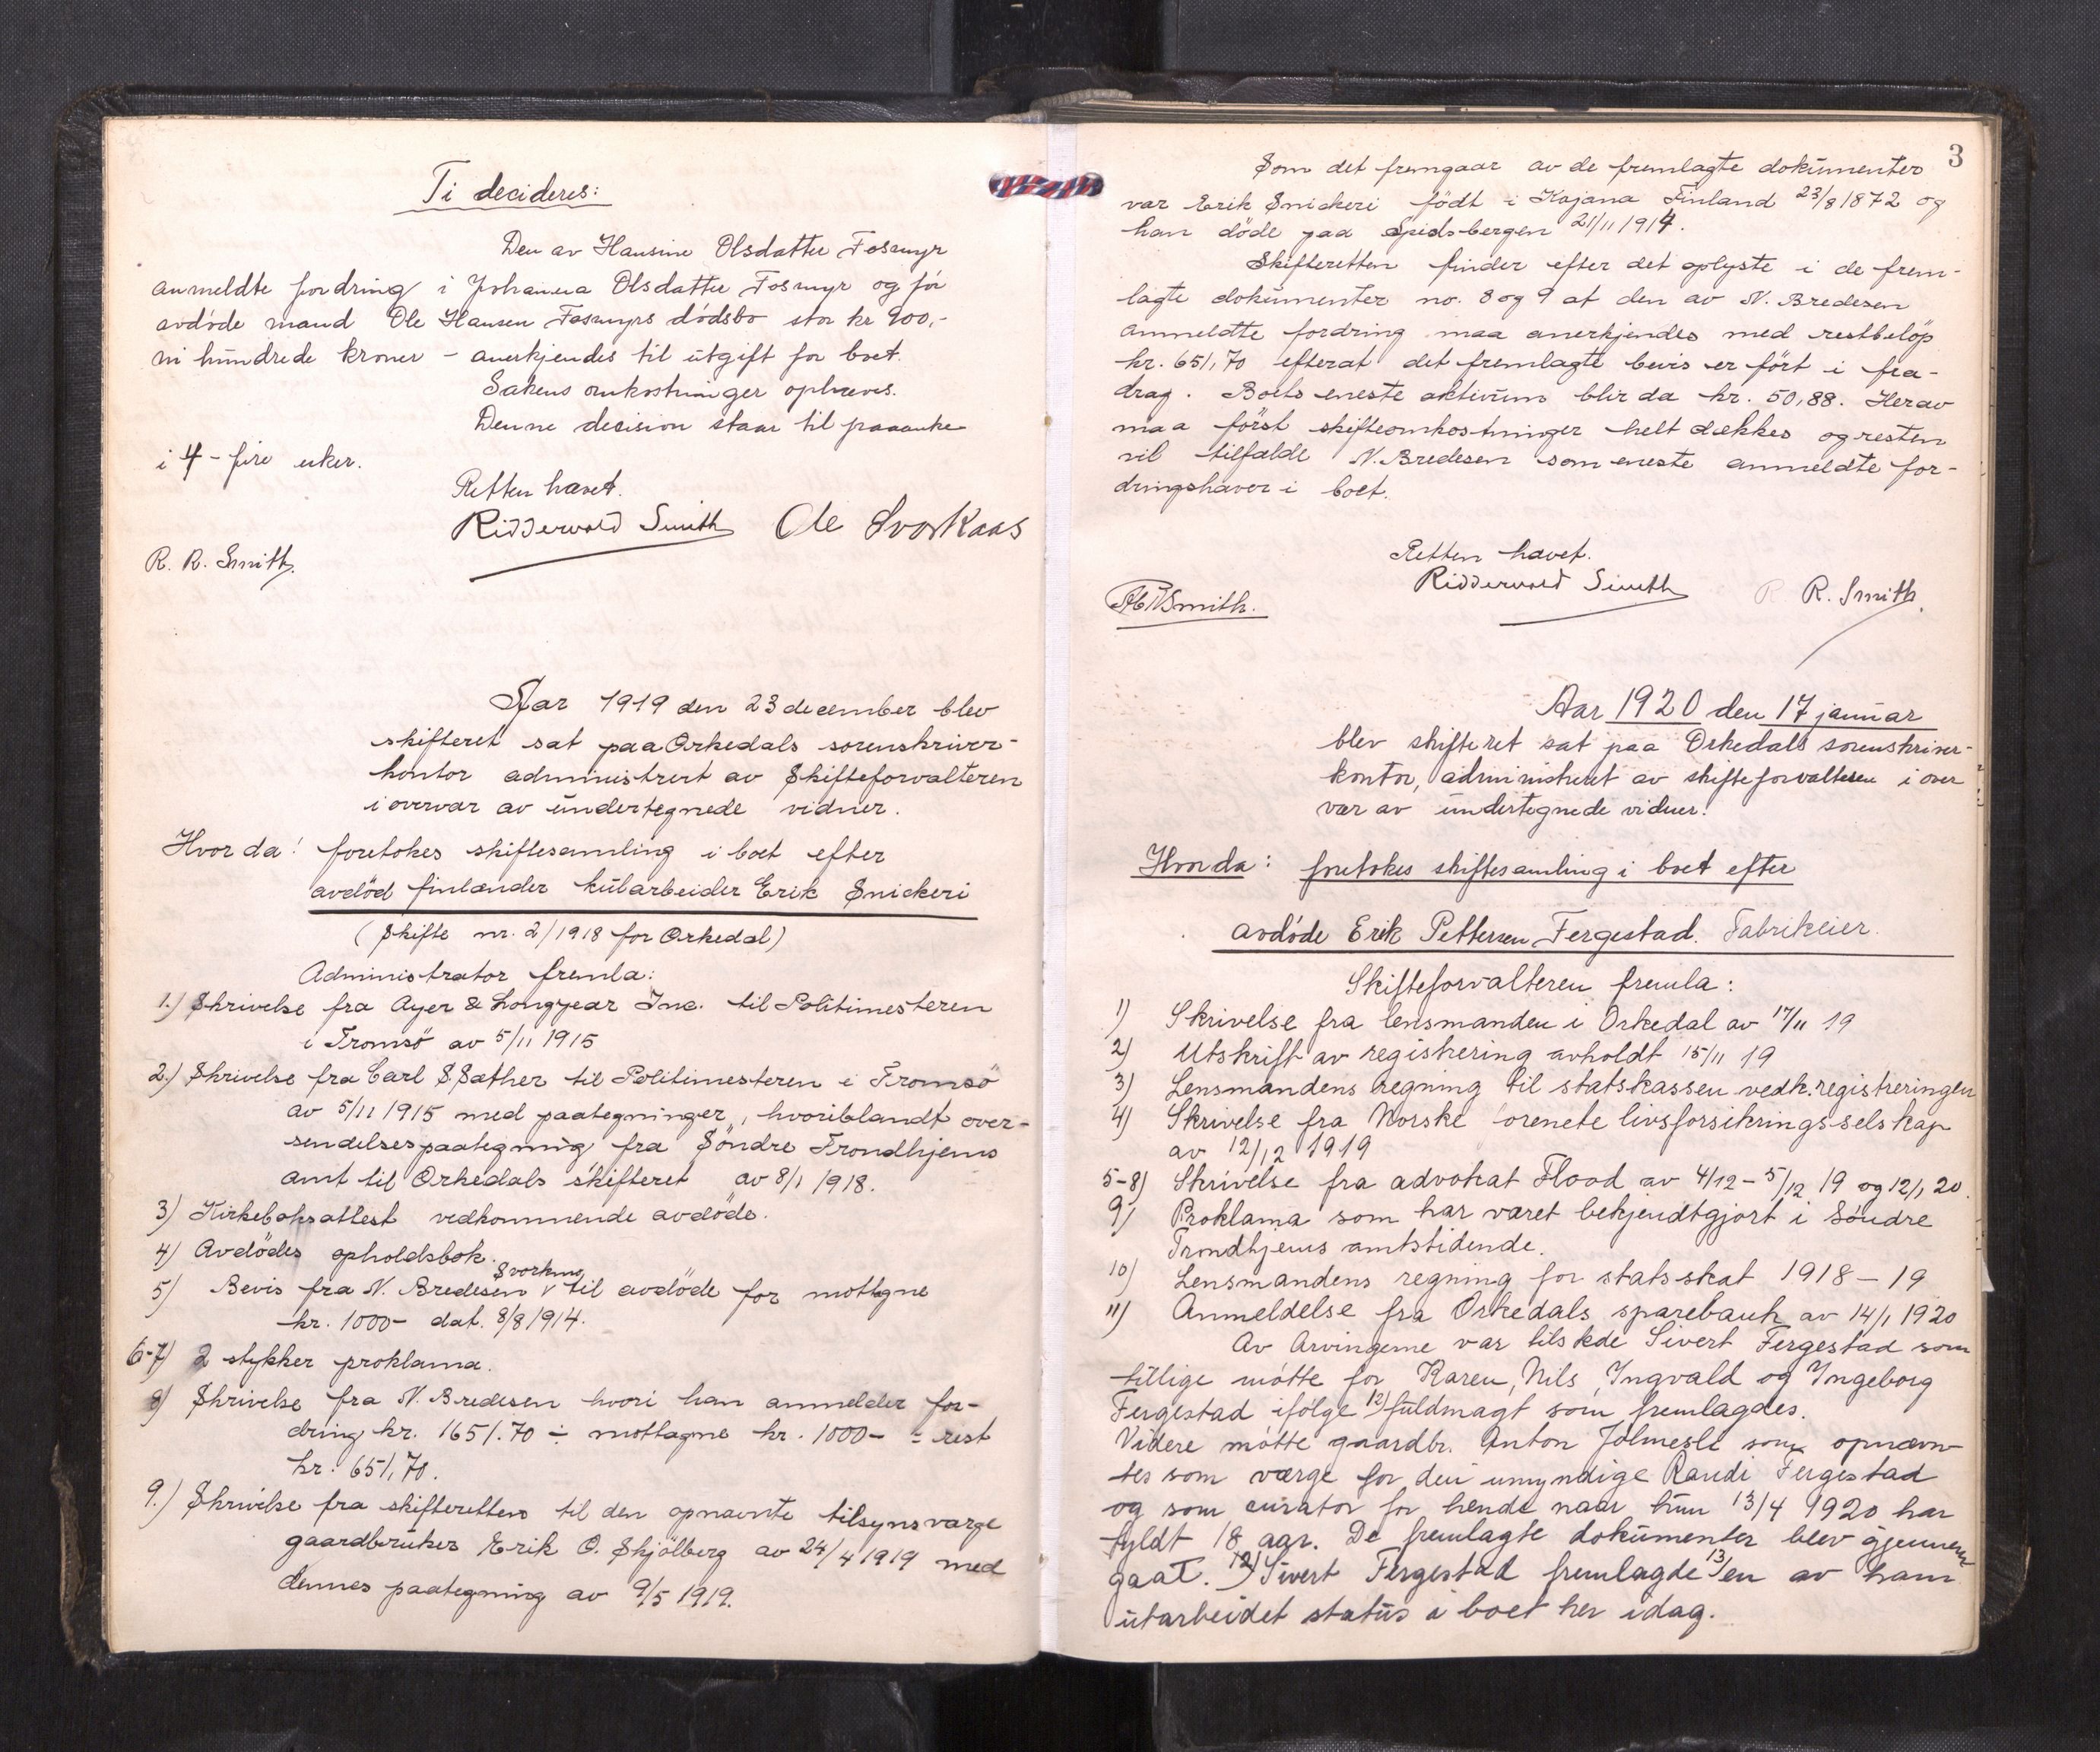 Ti decideres:
Den av Hansine Olsdatter Fosmyr
anmeldte fordring i Johanna Olsdatter Fosmyr og før
avdøde mand Ole Hansen Fosmyrs dødsbo stor kr 900,-
ni hundrede kroner - anerkjendes til utgift for boet.
Sakens omkostninger ophæves.
Denne decision staar til paaanke
i 4 - fire uker.
Retten hævet.
Ridderwold Smith Ole Svorkaas
R. R. Smith.
Aar 1919 den 23 december blev
skifteret sat paa Orkedals sorenskriver-
kontor administrert av Skifteforvalteren
i overvær av undertegnede vidner.
Hvor da: foretokes skiftesamling i boet efter
avdöd finlænder kularbeider Erik Snickeri
(Skifte nr. 2/1918 for Orkedal)
Administrator fremla:
1.) Skrivelse fra Ayer & Longyear Inc. til Politimesteren
i Tromsö av 5/11 1915
2.) Skrivelse fra Carl S. Sæther til Politimesteren i Tromsö
av 5/11 1915 med paategninger, hvoriblandt over-
sendelsespaategning fra Söndre Trondhjems
amt til Orkedals skifteret av 8/1 1918.
3) Kirkeboksattest vedkommende avdöde.
4) Avdödes opholdsbok.
Svorkmo
5) Bevis fra N. Bredesen v til avdöde for mottagne
kr. 1000- dat. 8/8 1914.
6-7) 2 stykker proklama.
8) Skrivelse fra N. Bredesen hvori han anmelder for-
dring kr. 1651.70 ÷ mottagne kr. 1000- = rest
kr. 651,70.
9.) Skrivelse fra skifteretten til den opnævnte tilsynsværge
gaardbruker Erik O. Skjölberg av 24/4 1919 med
dennes paategning av 9/5 1919.
3
Som det fremgaar av de fremlagte dokumenter
var Erik Snickeri födt i Kajana Finland 23/8 1872 og
han döde paa Spidsbergen 21/11 1914.
Skifteretten finder efter det oplyste i de frem-
lagte dokumenter no. 8 og 9 at den av N. Bredesen
anmeldte fordring maa anerkjendes med restbelöp
kr. 651,70 efterat det fremlagte bevis er fört i fra-
drag. Boets eneste aktivum blir da kr. 50,88. Herav
maa först skifteomkostninger helt dækkes og resten
vil tilfalde N. Bredesen som eneste anmeldte for-
dringshaver i boet.
Retten hævet.
Ridderwold Smith R R. Smith.
Smith.
Aar 1920 den 17 januar
blev skifteret sat paa Orkedals sorenskriver-
kontor, administrert av skifteforvalteren i over
vær av undertegnede vidner.
Hvor da: foretokes skiftesamling i boet efter
avdøde Erik Pettersen Fergestad. Fabrikeier.
Skifteforvalteren fremla:
1) Skrivelse fra lensmanden i Orkedal av 17/11 19
2) Utskrift av registrering avholdt 15/11 19
3) Lensmandens regning til statskassen vedk. registreringen
4) Skrivelse fra Norske forenete livsforsikringsselskap
av 12/12 1919
5-8) Skrivelse fra advokat Flood av 4/12 - 5/12 19 og 12/1 20.
9) Proklama som har været bekjendtgjort i Søndre
Trondhjems amtstidende.
10) Lensmandens regning for statsskat 1918 - 19
11) Anmeldelse fra Orkedals sparebank av 14/1 1920
Av Arvingerne var tilstede Sivert Fergestad som
tillige møtte for Karen, Nils, Ingvald og Ingeborg
Fergestad ifølge 12) fuldmagt som fremlagdes.
Videre møtte gaardbr. Anton Jolmesli som opnævn-
tes som værge for den umyndige Randi Fergestad
og som curator for hende naar hun 13/4 1920 har
fyldt 18 aar. De fremlagte dokumenter blev gjennem
gaat. 12) Sivert Fergestad fremlagde 13) en av ham
utarbeidet status i boet her idag.